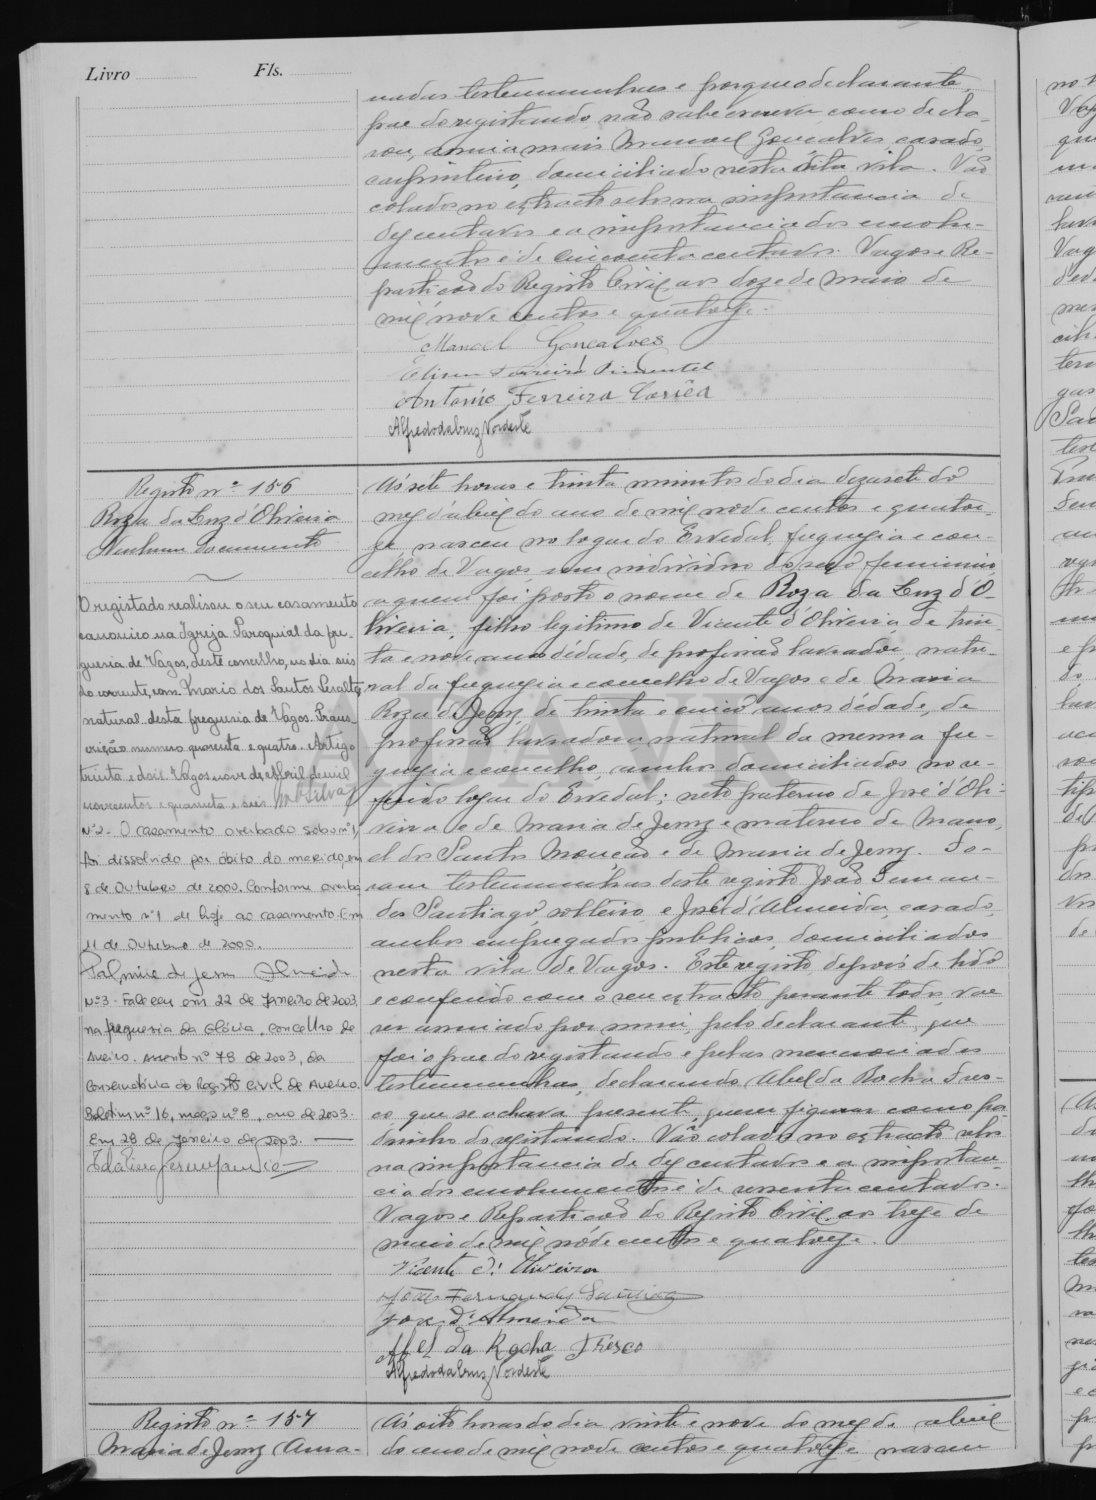 Livro Fls.
nadas testemunhas e porque o declarante,
pae do registando, não sabe escrever, como decla-
rou, assina mais Manoel Gonçalves, casado,
carpinteiro, domiciliado nesta dita vila. Vão
colados no extracto selos na importancia de
dez centavos e a importancia dos emolu-
mentos é de cincoenta centavos. Vagos e Re-
partição do Registo Civil, aos doze de maio de
mil nove centos e quatorze.
Manoel Gonçalves
Pimentel
Antonio Ferreira Corrêa
Alfredo da Cruz Nordeste
Registo nº 156
Roza da Luz d'Oliveira
Nenhum documento
O registado realisou o seu casamento
canonico na Igreja Paroquial da fre-
guesia de Vagos, deste concelho, no dia seis
do corrente, com Mario dos Santos Peralta
natural desta freguesia de Vagos. Trans-
crição numero quarenta e quatro. Artigo
trinta e dois. Vagos nove de Abril de mil
novecentos e quarenta e seis. Silva
Nº2 - O casamento averbado sob o nº1,
foi dissolvido por óbito do marido, em
8 de Outubro de 2000. Conforme averba
mento nº1 de hoje ao casamento. Em
11 de Outubro de 2000.
Palmira de Jesus Almeida
Nº3 - Faleceu em 22 de Janeiro de 2003,
na freguesia da Glória, concelho de
Aveiro. Assento nº 78 de 2003, da
Conservatória do Registo Civil de Aveiro.
Boletim nº 16, maço nº 8, ano de 2003.
Em 28 de Janeiro de 2003.
Ás sete horas e trinta minutos do dia dezasete do
mez d'abril do ano de mil nove centos e quator-
ze, nasceu no logar do Ervedal, freguezia e con-
celho de Vagos, um individuo do sexo feminino,
a quem foi posto o nome de Roza da Luz d'O-
liveira, filho legitimo de Vicente d'Oliveira de trin-
ta e nove anos d'edade, de profissão lavrador, natu-
ral da freguezia e concelho de Vagos e de Maria
Roza de Jezuz, de trinta e cinco anos d'edade, de
profissão lavradora, natural da mesma fre-
guezia e concelho, ambos domiciliados no re-
ferido logar do Ervedal; neto paterno de José d'Oli-
veira e de Maria de Jezuz e materno de Mano-
el dos Santos Mourão e de Maria de Jezuz. Fo-
ram testemunhas deste registo João Fernan-
des Santiago, solteiro e José d'Almeida, casado,
ambos empregados publicos, domiciliados
nesta vila de Vagos. Este registo, depois de lido
e conferido com o seu extracto perante todos, vae
ser assinado por mim, pelo declarante, que
foi o pae do registando e pelas mencionadas
testemunhas, declarando Abel da Rocha Fres-
co, que se achava presente, querer figurar como pa-
drinho do registando. Vão colados no extracto selos
na importancia de dez centavos e a importan-
cia dos emolumentos é de sessenta centavos.
Vagos e Repartição do Registo Civil, aos treze de
maio de mil nóve centos e quatorze.
Vicente d'Oliveira
João Fernandes Santiago
José d'Almeida
Abel da Rocha Fresco
Alfredo da Cruz Nordeste
Registo nº 157
Maria de Jezuz
Ás oito horas do dia vinte e nove do mez de abril
do ano de mil nove centos e quatorze, nasceu